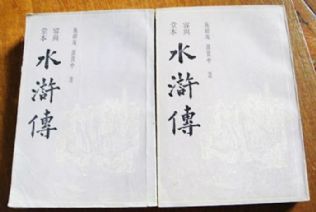 施耐庵 羅貫中 著
容與堂本
水滸傳
施耐庵 羅貫中 著
容與堂本
水滸傳